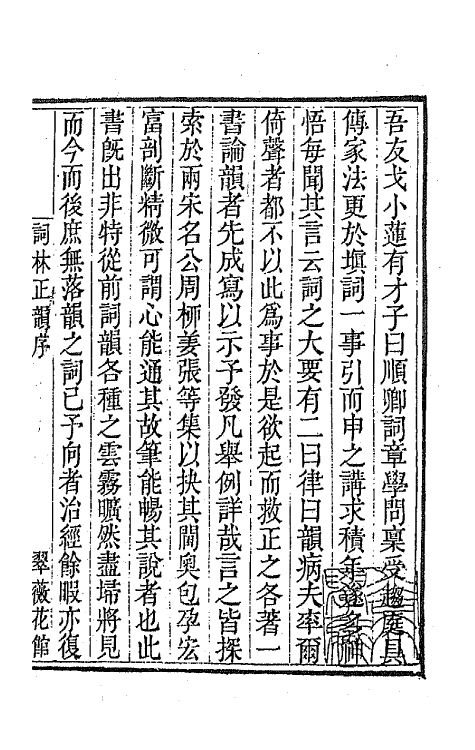 吾友戈小蓮有才子曰順卿詞章學問稟受趨庭具
傳家法更於塡詞一事引而申之講求積年遂多神
悟每聞其言云詞之大要有二曰律曰韻病夫率爾
倚聲者都不以此爲事於是欲起而救正之各著一
書論韻者先成寫以示予發凡舉例詳哉言之皆探
索於兩宋名公周柳姜張等集以抉其閫奧包孕宏
富剖斷精微可謂心能通其故筆能暢其說者也此
書旣出非特從前詞韻各種之雲霧曠然盡埽將見
而今而後庶無落韻之詞已予向者治經餘暇亦復
詞林正韻序
翠薇花館